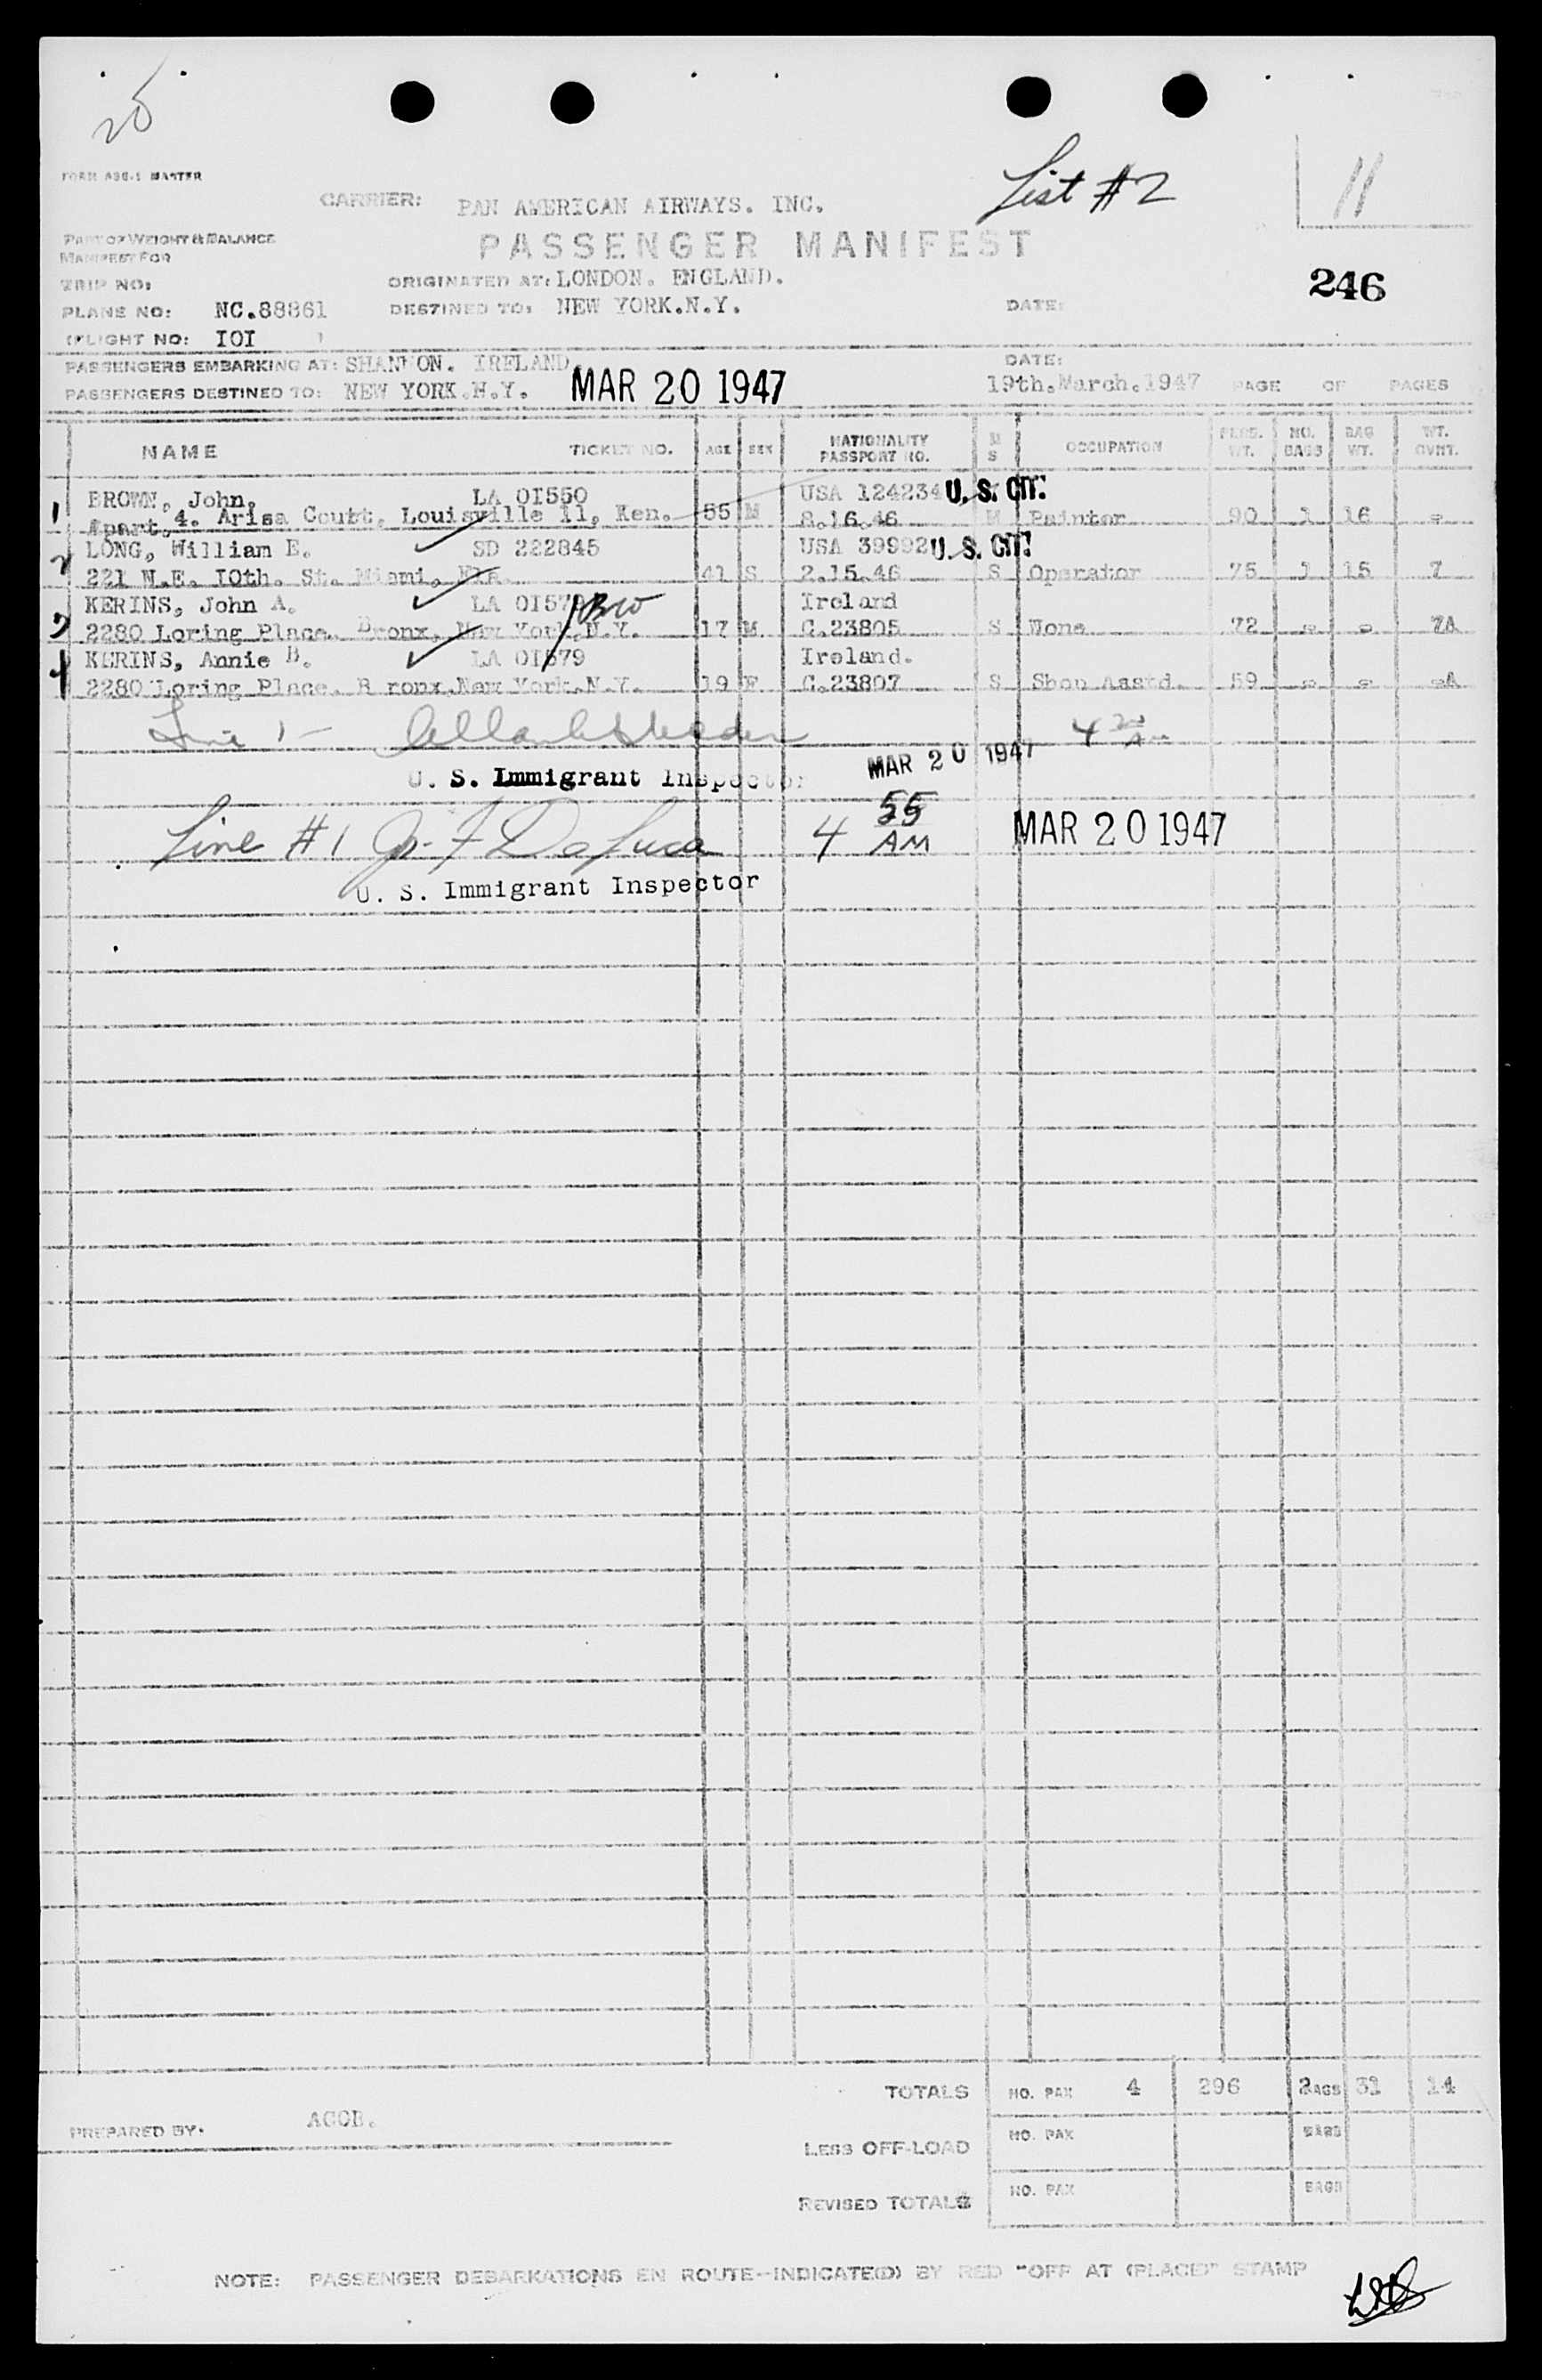 20
FORM ABC-1 MASTER
List #2
11
CARRIER: PAN AMERICAN AIRWAYS. INC.
PART OF WEIGHT & BALANCE
MANIFEST FOR
PASSENGER MANIFEST
246
TRIP NO:
ORIGINATED AT: LONDON. ENGLAND.
PLANE NO: NC.88861
DESTINED TO: NEW YORK.N.Y.
DATE:
FLIGHT NO: IOI
PASSENGERS EMBARKING AT: SHANNON. IRELAND
DATE:
PASSENGERS DESTINED TO: NEW YORK.N.Y. MAR 20 1947 19th.March.1947 PAGE OF PAGES
NAME TICKET NO. AGE SEX NATIONALITY PASSPORT NO. M S OCCUPATION PLBS. WT. NO. BAGS BAG WT. WT. OVHT.
1 BROWN, John, LA OI550 USA 124234 U.S. CIT.
Apart.4. Arisa Court, Louisville 11, Ken. 55 M 8.16.46 M Painter 90 1 16 -
2 LONG, William E. SD 222845 USA 39992 U.S. CIT.
221 N.E. IOth. St. Miami, Fla. 41 S 2.15.46 S Operator 75 1 15 7
3 KERINS, John A. LA OI579 Ireland
2280 Loring Place. Bronx, New York,N.Y. 17 M C.23805 S None 72 - - 7A
4 KERINS, Annie B. LA OI579 Ireland.
2280 Loring Place. B ronx,New York.N.Y. 19 F C.23807 S Shop Asstd. 59 - - -A
Line 1 -
U. S. Immigrant Inspector MAR 20 1947
Line #1 Jo. F DeLuca 4 55 AM MAR 20 1947
U. S. Immigrant Inspector
TOTALS NO. PAX 4 296 2 BAGS 31 14
PREPARED BY. ACOB.
LESS OFF-LOAD NO. PAX BAGS
REVISED TOTALS NO. PAX BAGS
NOTE: PASSENGER DEBARKATIONS EN ROUTE--INDICATE(D) BY RED "OFF AT (PLACE)" STAMP